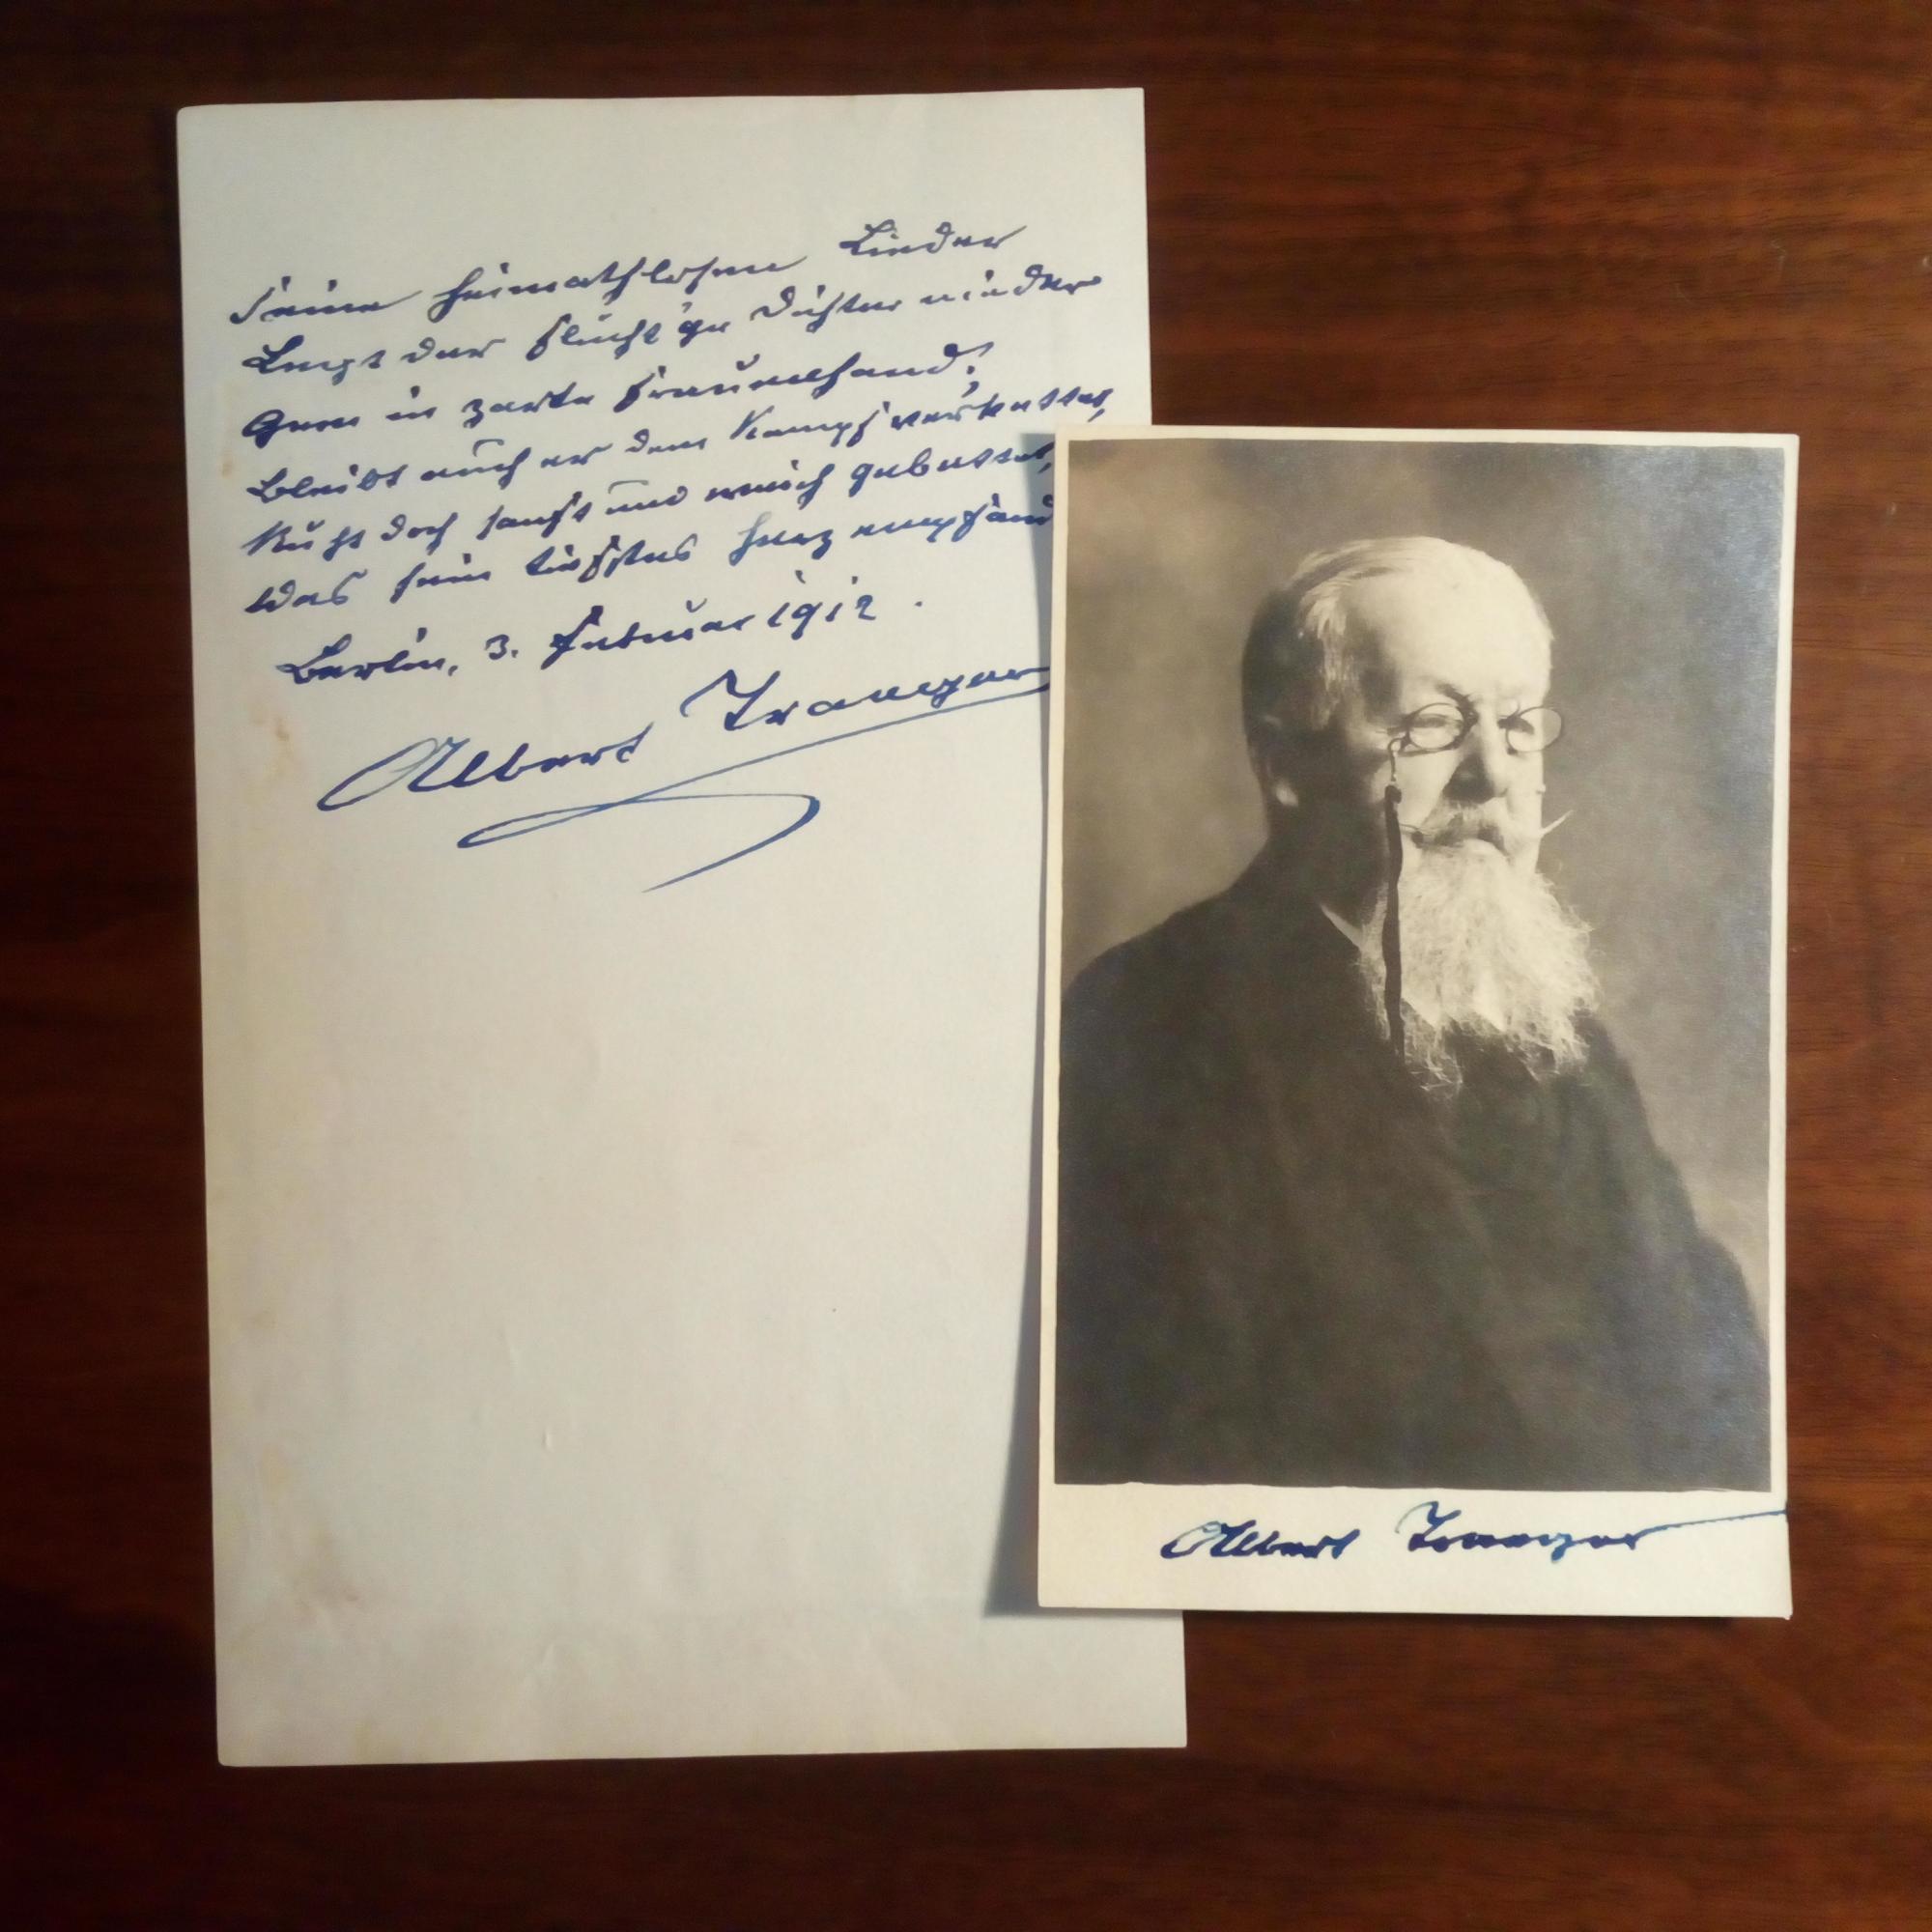 Seine heimathlosen Lieder
Legt der flücht'ge Dichter nieder
Gern in zarte Frauenhand:
Bleibt auch er dem Kampf verkettet,
Ruht doch sanft und weich gebettet,
Was sein tiefstes Herz empfand
Berlin, 3. Februar 1912.
Albert Traeger
Albert Traeger